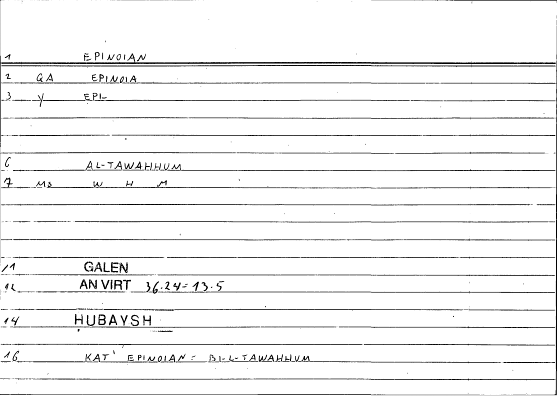 1 EPINOIAN
2 GA EPINOIA
3 Y EPI-
6 AL-TAWAHHUM
7 MS W H M
11 GALEN
12 AN VIRT 36.24=13.5
14 HUBAYSH
16 KAT' EPINOIAN = BI-L-TAWAHHUM